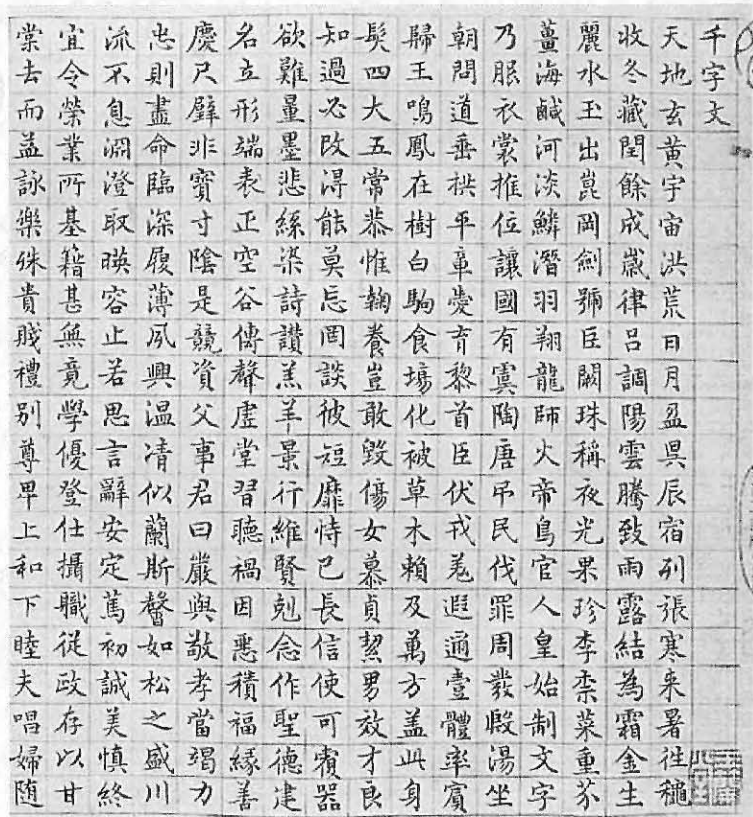 千字文
天地玄黃宇宙洪荒日月盈昃辰宿列張寒来暑往穐
收冬藏閏餘成嵗律呂調陽雲騰致雨露結為霜金生
麗水玉出崑岡劍號巨闕珠稱夜光果珍李柰菜重芥
薑海鹹河淡鱗潛羽翔龍師火帝鳥官人皇始制文字
乃服衣裳推位讓國有虞陶唐弔民伐罪周發殷湯坐
朝問道垂拱平章愛育黎首臣伏戎羌遐邇壹體率賓
歸王鳴鳳在樹白駒食場化被草木賴及萬方盖此身
髮四大五常恭惟鞠養豈敢毀傷女慕貞絜男效才良
知過必改得能莫忘罔談彼短靡恃己長信使可覆器
欲難量墨悲絲染詩讚羔羊景行維賢剋念作聖德建
名立形端表正空谷傳聲虛堂習聽禍因惡積福緣善
慶尺璧非寶寸陰是競資父事君曰嚴與敬孝當竭力
忠則盡命臨深履薄夙興温凊似蘭斯馨如松之盛川
流不息淵澄取暎容止若思言辭安定篤初誠美慎終
宜令榮業所基籍甚無竟學優登仕攝職從政存以甘
棠去而益詠樂殊貴賤禮別尊卑上和下睦夫唱婦随